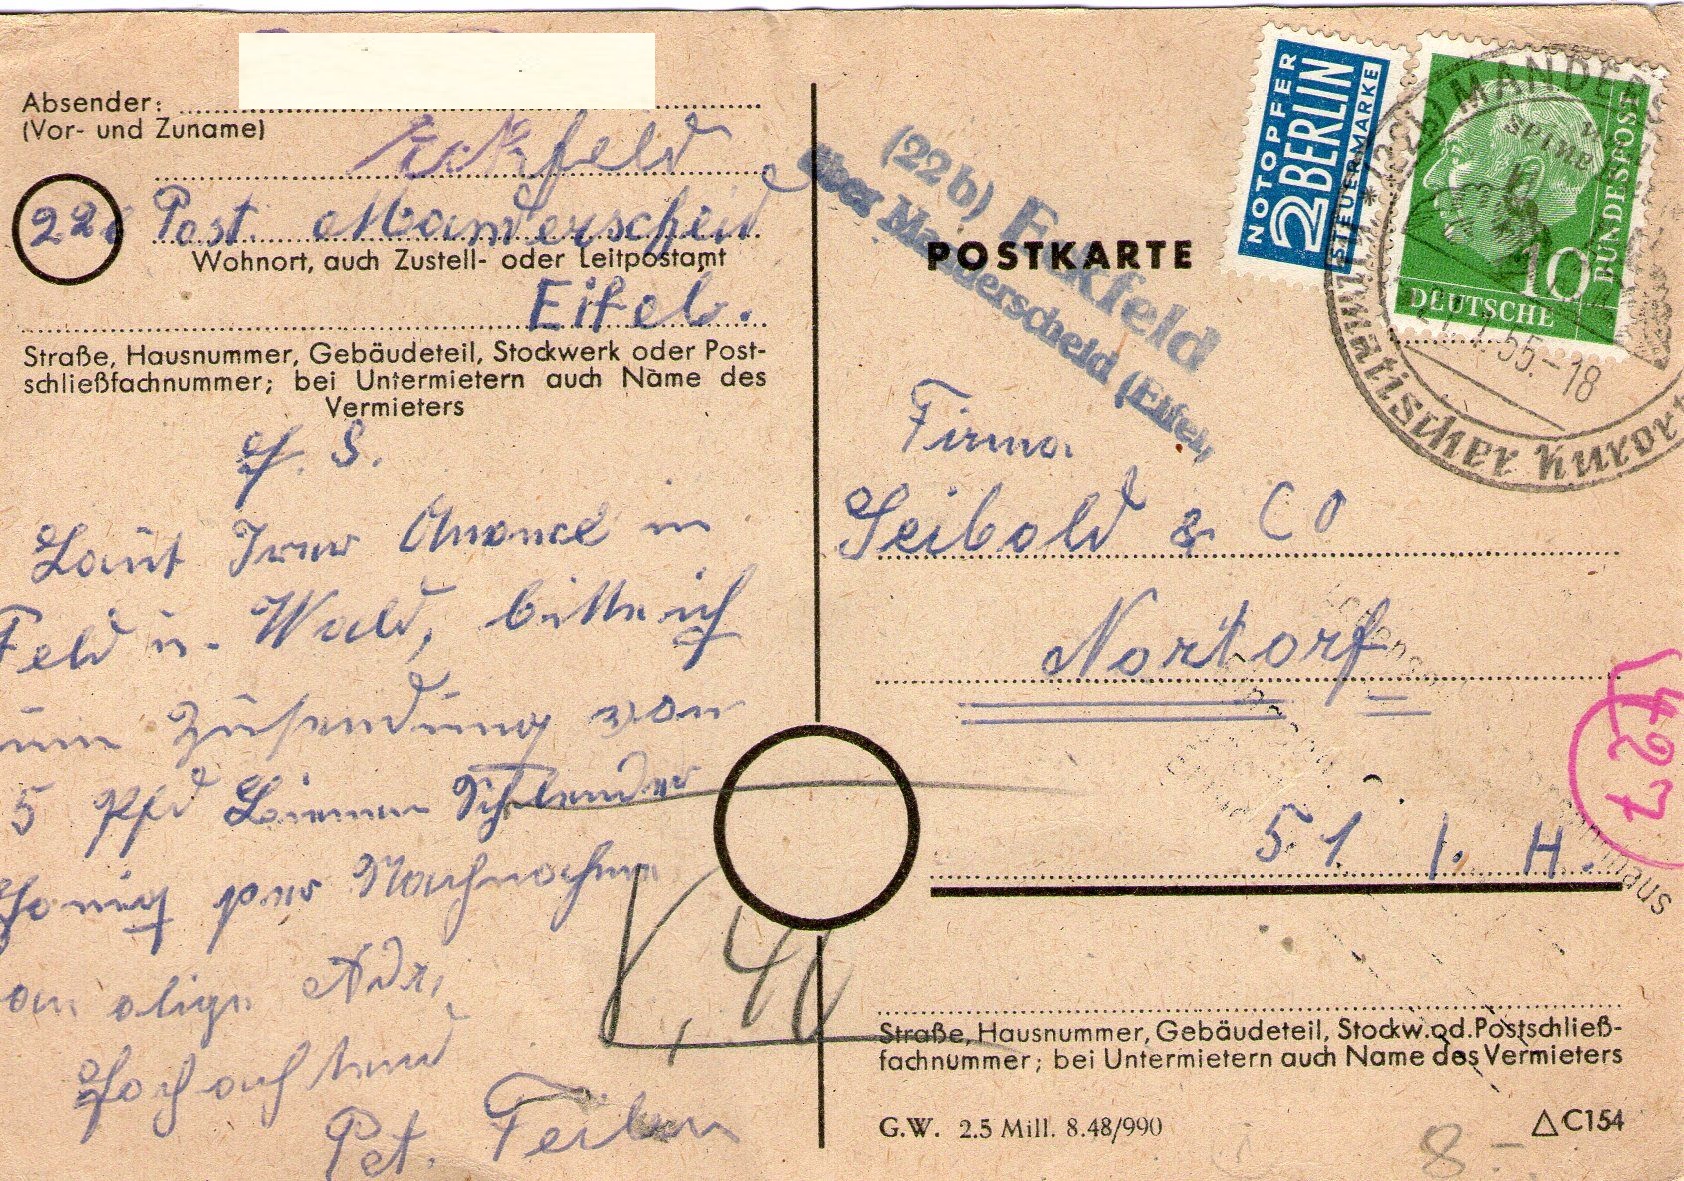 Absender:
(Vor- und Zuname)
Eckfeld
22b Post. Manderscheid
Wohnort, auch Zustell- oder Leitpostamt
Eifel.
Straße, Hausnummer, Gebäudeteil, Stockwerk oder Post-
schließfachnummer; bei Untermietern auch Name des
Vermieters
Laut Irer Anonce in
Feld u. Wald, bitte ich
um Zusendung von
5 Pfd Linnen Schlender
Honig per Nachnahme
an obige Adr.
Hochachtend
Pet. Feilen
8,40
(22b) Eckfeld
über Manderscheid (Eifel)
POSTKARTE
NOTOPFER
2 BERLIN
STEUERMARKE
10
DEUTSCHE
BUNDESPOST
(22b) MANDER
55.-18
Klimatischer Kurort
Firma
Seibold & CO
Nortorf
51 i. H.
427
Straße, Hausnummer, Gebäudeteil, Stockw. od. Postschließ-
fachnummer; bei Untermietern auch Name des Vermieters
G.W. 2.5 Mill. 8.48/990
△ C154
8-